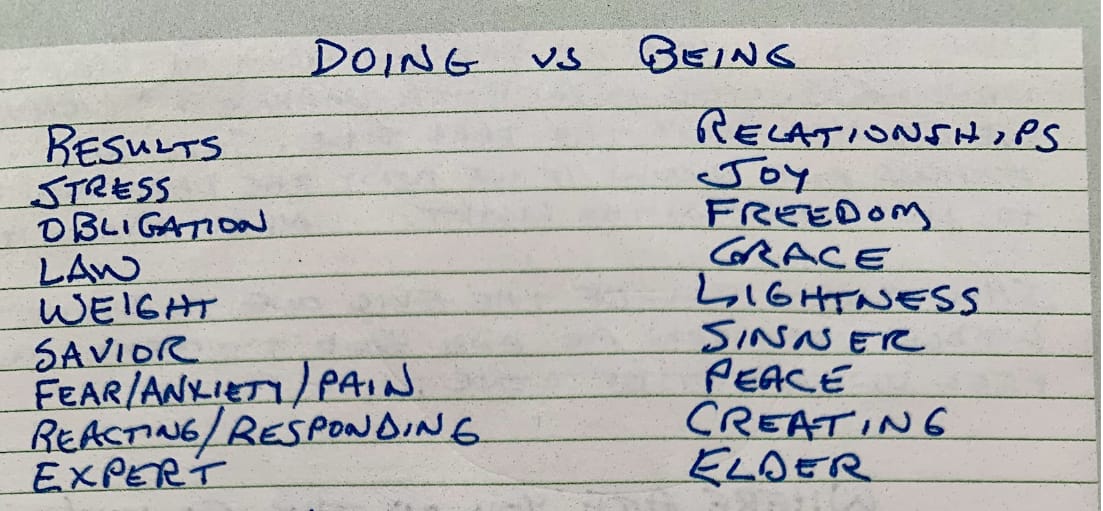 DOING vs BEING
RESULTS RELATIONSHIPS
STRESS JOY
OBLIGATION FREEDOM
LAW GRACE
WEIGHT LIGHTNESS
SAVIOR SINNER
FEAR/ANXIETY/PAIN PEACE
REACTING/RESPONDING CREATING
EXPERT ELDER